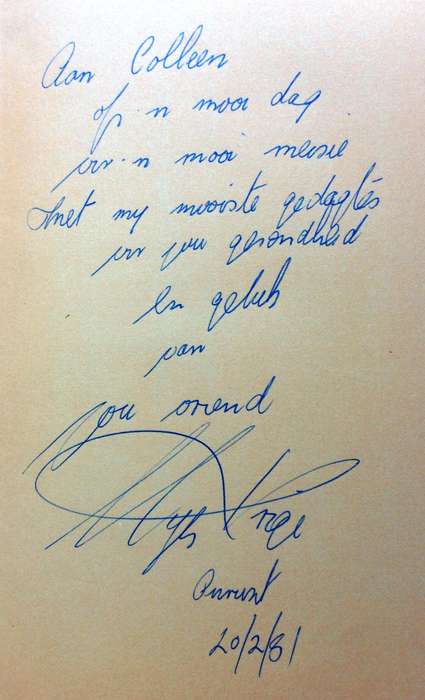 Aan Colleen
op 'n mooi dag
vir 'n mooi meisie
met my mooiste gedagtes
vir jou gesondheid
en geluk
van
jou vriend
20/2/81